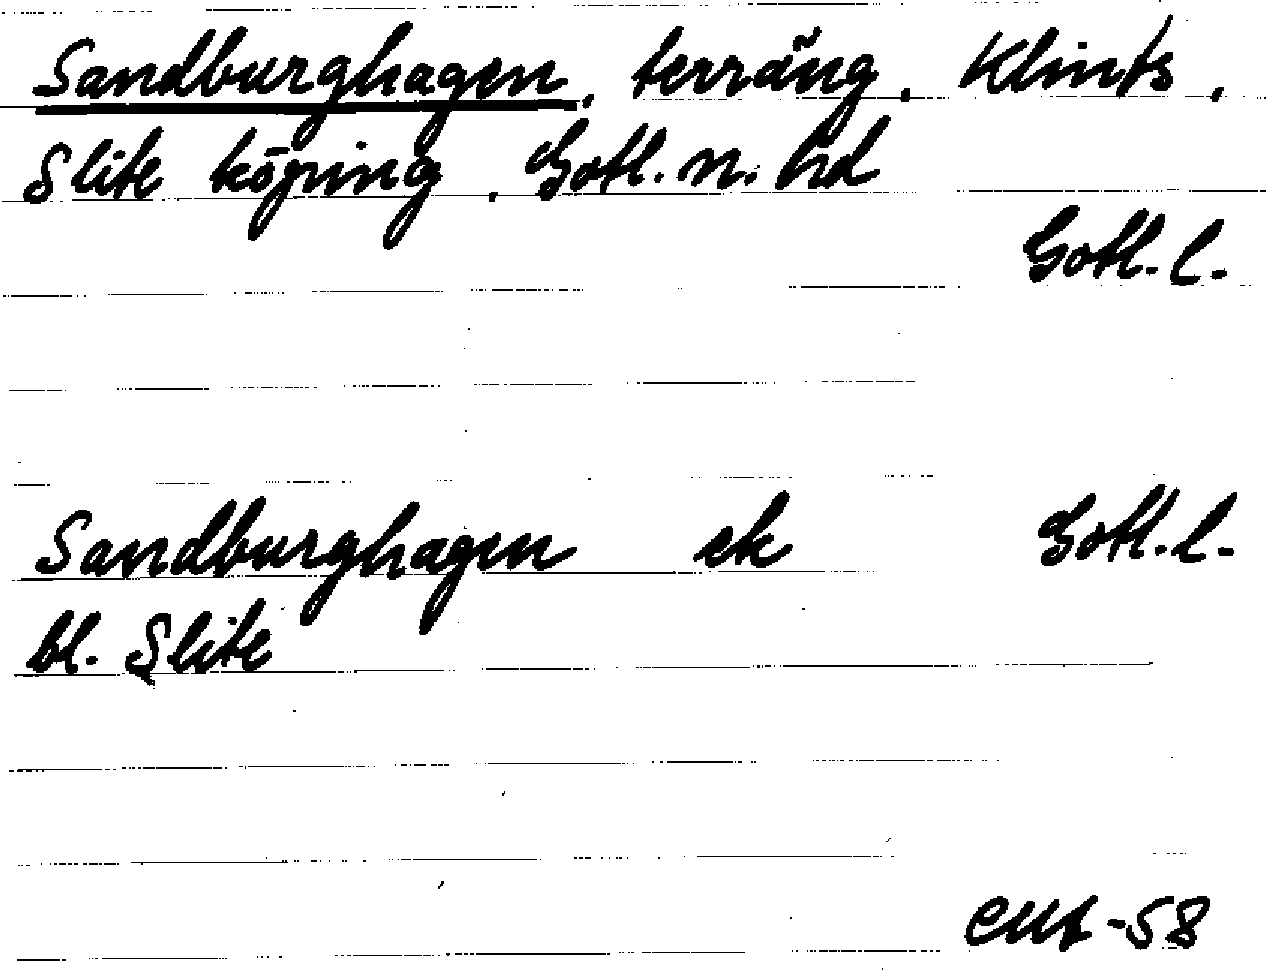 Sandburghagen, terräng, Klints,
Slite köping, Gotl. n. hd
Gotl. l.
Sandburghagen ek Gotl. l.
bl. Slite
-58